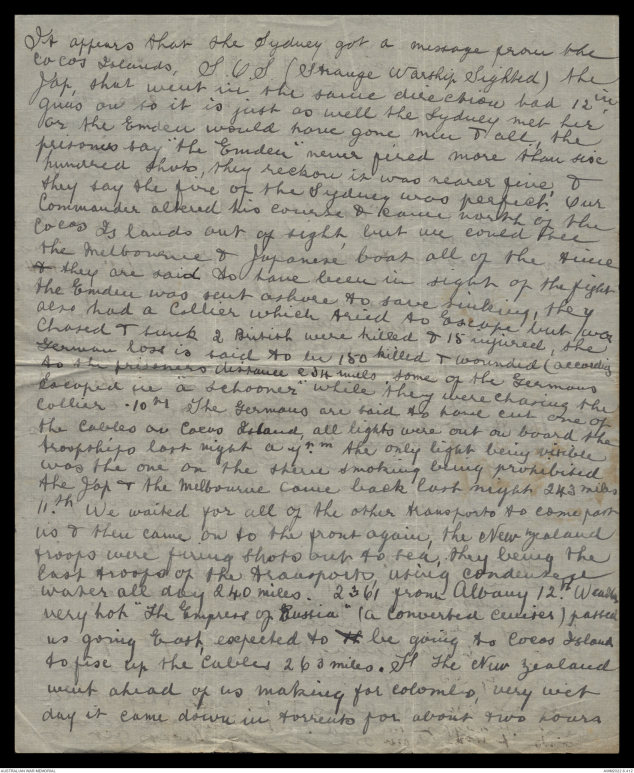 It appears that the Sydney got a message from the
Cocos Islands, S.O.S (Strange Warship Sighted) the
Jap, that went in the same direction had 12 in
guns on so it is just as well the Sydney met her
or the Emden would have gone men & all, the
prisoners say "the Emden" never fired more than six
hundred shots, they reckon it was nearer five, &
they say the fire of the Sydney was perfect. Our
Commander altered his course & came north of the
Cocos Islands out of sight, but we could see
the Melbourne & Japanese boat all of the time
& they are said to have been in sight of the fight
the Emden was sent ashore to save sinking, they
also had a Collier which tried to escape but was
chased & sunk 2 British were killed & 15 injured, the
German loss is said to be 180 killed & wounded (according
to the prisoners distance 234 miles. some of the Germans
escaped in a schooner" while they were chasing the
Collier. 10th The Germans are said to have cut one of
the Cables on Cocos Island, all lights were out on board the
troopships last night the only light being visible
was the one on the stern smoking being prohibited
the Jap & the Melbourne came back last night 243 miles
11.th We waited for all of the other transports to come past
us & then came on to the front again, the New Zealand
troops were firing shots out to sea, they being the
last troops of the transports, using condense
water all day 240 miles. 2361 from Albany 12th Weather
very hot "The Empress of Russia" (a converted cruiser) passed
us going East, expected to be going to Cocos Island
to fix up the Cables 263 miles. The New Zealand
went ahead of us making for Colombo, very wet
day it came down in torrents for about two hours
AUSTRALIAN WAR MEMORIAL